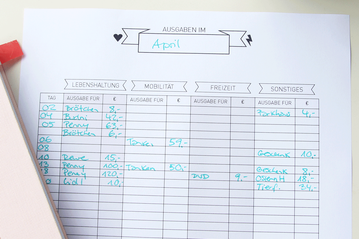 AUSGABEN IM
April
LEBENSHALTUNG MOBILITÄT FREIZEIT SONSTIGES
TAG AUSGABE FÜR € AUSGABE FÜR € AUSGABE FÜR € AUSGABE FÜR €
02 Brötchen 8,- 4,-
04 42,-
05 Penny 63,-
Brötchen 6,-
06 Tanken 57,-
08
10 Rewe 15,- Geschenk 10,-
Penny 100,- Tanken 50,- Geschenk 8,-
Penny 120,- DVD 9,- 18,-
Lidl 10,- 34,-